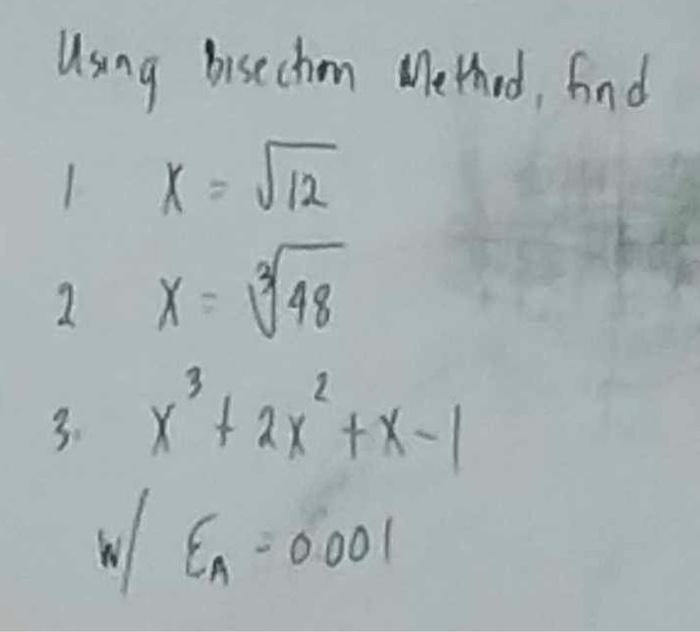 Using Bisection Method, find
1 X = √12
2 X = ∛48
3. x³ + 2x² + x - 1
w/ EA = 0.001